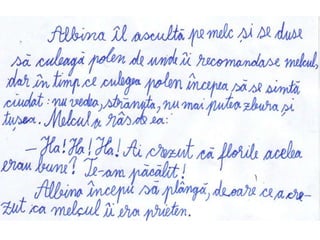 Albina îl ascultă pe melc și se duse
să culeagă polen de unde îi recomandase melcul,
dar în timp ce culegea polen începea să se simtă
ciudat: nu vedea, strănuta, nu mai putea zbura și
tușea. Melcul a râs de ea:
– Ha! Ha! Ha! Ai crezut că florile acelea
erau bune? Te-am păcălit!
Albina începu să plângă, deoarece a cre-
zut ca melcul îi era prieten.